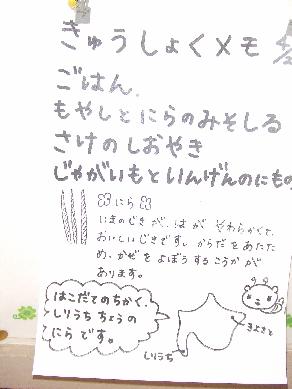 きゅうしょくメモ 4/2
ごはん、
もやしとにらのみそしる
さけのしおやき
じゃがいもといんげんのにもの
にら
いまのじきが、はが やわらかくて、
おいしいじきです。からだをあたた
め、かぜをよぼうするこうかが
あります。
はこだてのちかく、
しりうちちょうの
にらです。
しりうち